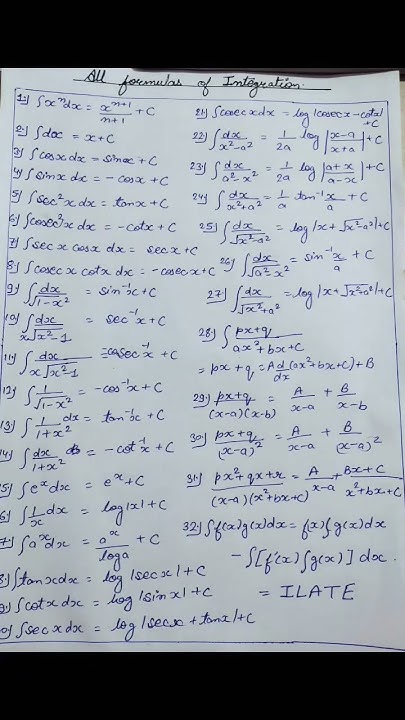 All formulas of Integration.
1) ∫xⁿdx = xⁿ⁺¹/n+1 + C
2) ∫dx = x+C
3) ∫cosx dx = sinx + C
4) ∫sinx dx = -cosx + C
5) ∫sec²x dx = tanx + C
6) ∫cosec²x dx = -cotx + C
7) ∫secx cosx dx = secx + C
8) ∫cosecx cotx dx = -cosecx + C
9) ∫dx/√1-x² = sin⁻¹x + C
10) ∫dx/x√x²-1 = sec⁻¹x + C
11) ∫dx/x√x²-1 = cosec⁻¹x + C
12) ∫1/√1-x² = -cos⁻¹x + C
13) ∫1/1+x² dx = tan⁻¹x + C
14) ∫dx/1+x² = -cot⁻¹x + C
15) ∫eˣdx = eˣ + C
6) ∫1/x dx = log|x| + C
7) ∫aˣdx = aˣ/loga + C
8) ∫tanx dx = log|secx| + C
9) ∫cotx dx = log|sinx| + C
0) ∫secx dx = log|secx + tanx| + C
21) ∫cosecx dx = log|cosecx - cotx| + C
22) ∫dx/x²-a² = 1/2a log|x-a/x+a| + C
23) ∫dx/a²-x² = 1/2a log|a+x/a-x| + C
24) ∫dx/x²+a² = 1/a tan⁻¹x/a + C
25) ∫dx/√x²-a² = log|x + √x²-a²| + C
26) ∫dx/√a²-x² = sin⁻¹x/a + C
27) ∫dx/√x²+a² = log|x + √x²+a²| + C
28) ∫px+q/ax²+bx+C
= px+q = A d/dx (ax²+bx+C) + B
29) px+q/(x-a)(x-b) = A/x-a + B/x-b
30) px+q/(x-a)² = A/x-a + B/(x-a)²
31) px²+qx+r/(x-a)(x²+bx+c) = A/x-a + Bx+C/x²+bx+C
32) ∫f(x)g(x)dx = f(x)∫g(x)dx
-∫[f'(x)∫g(x)] dx.
= ILATE